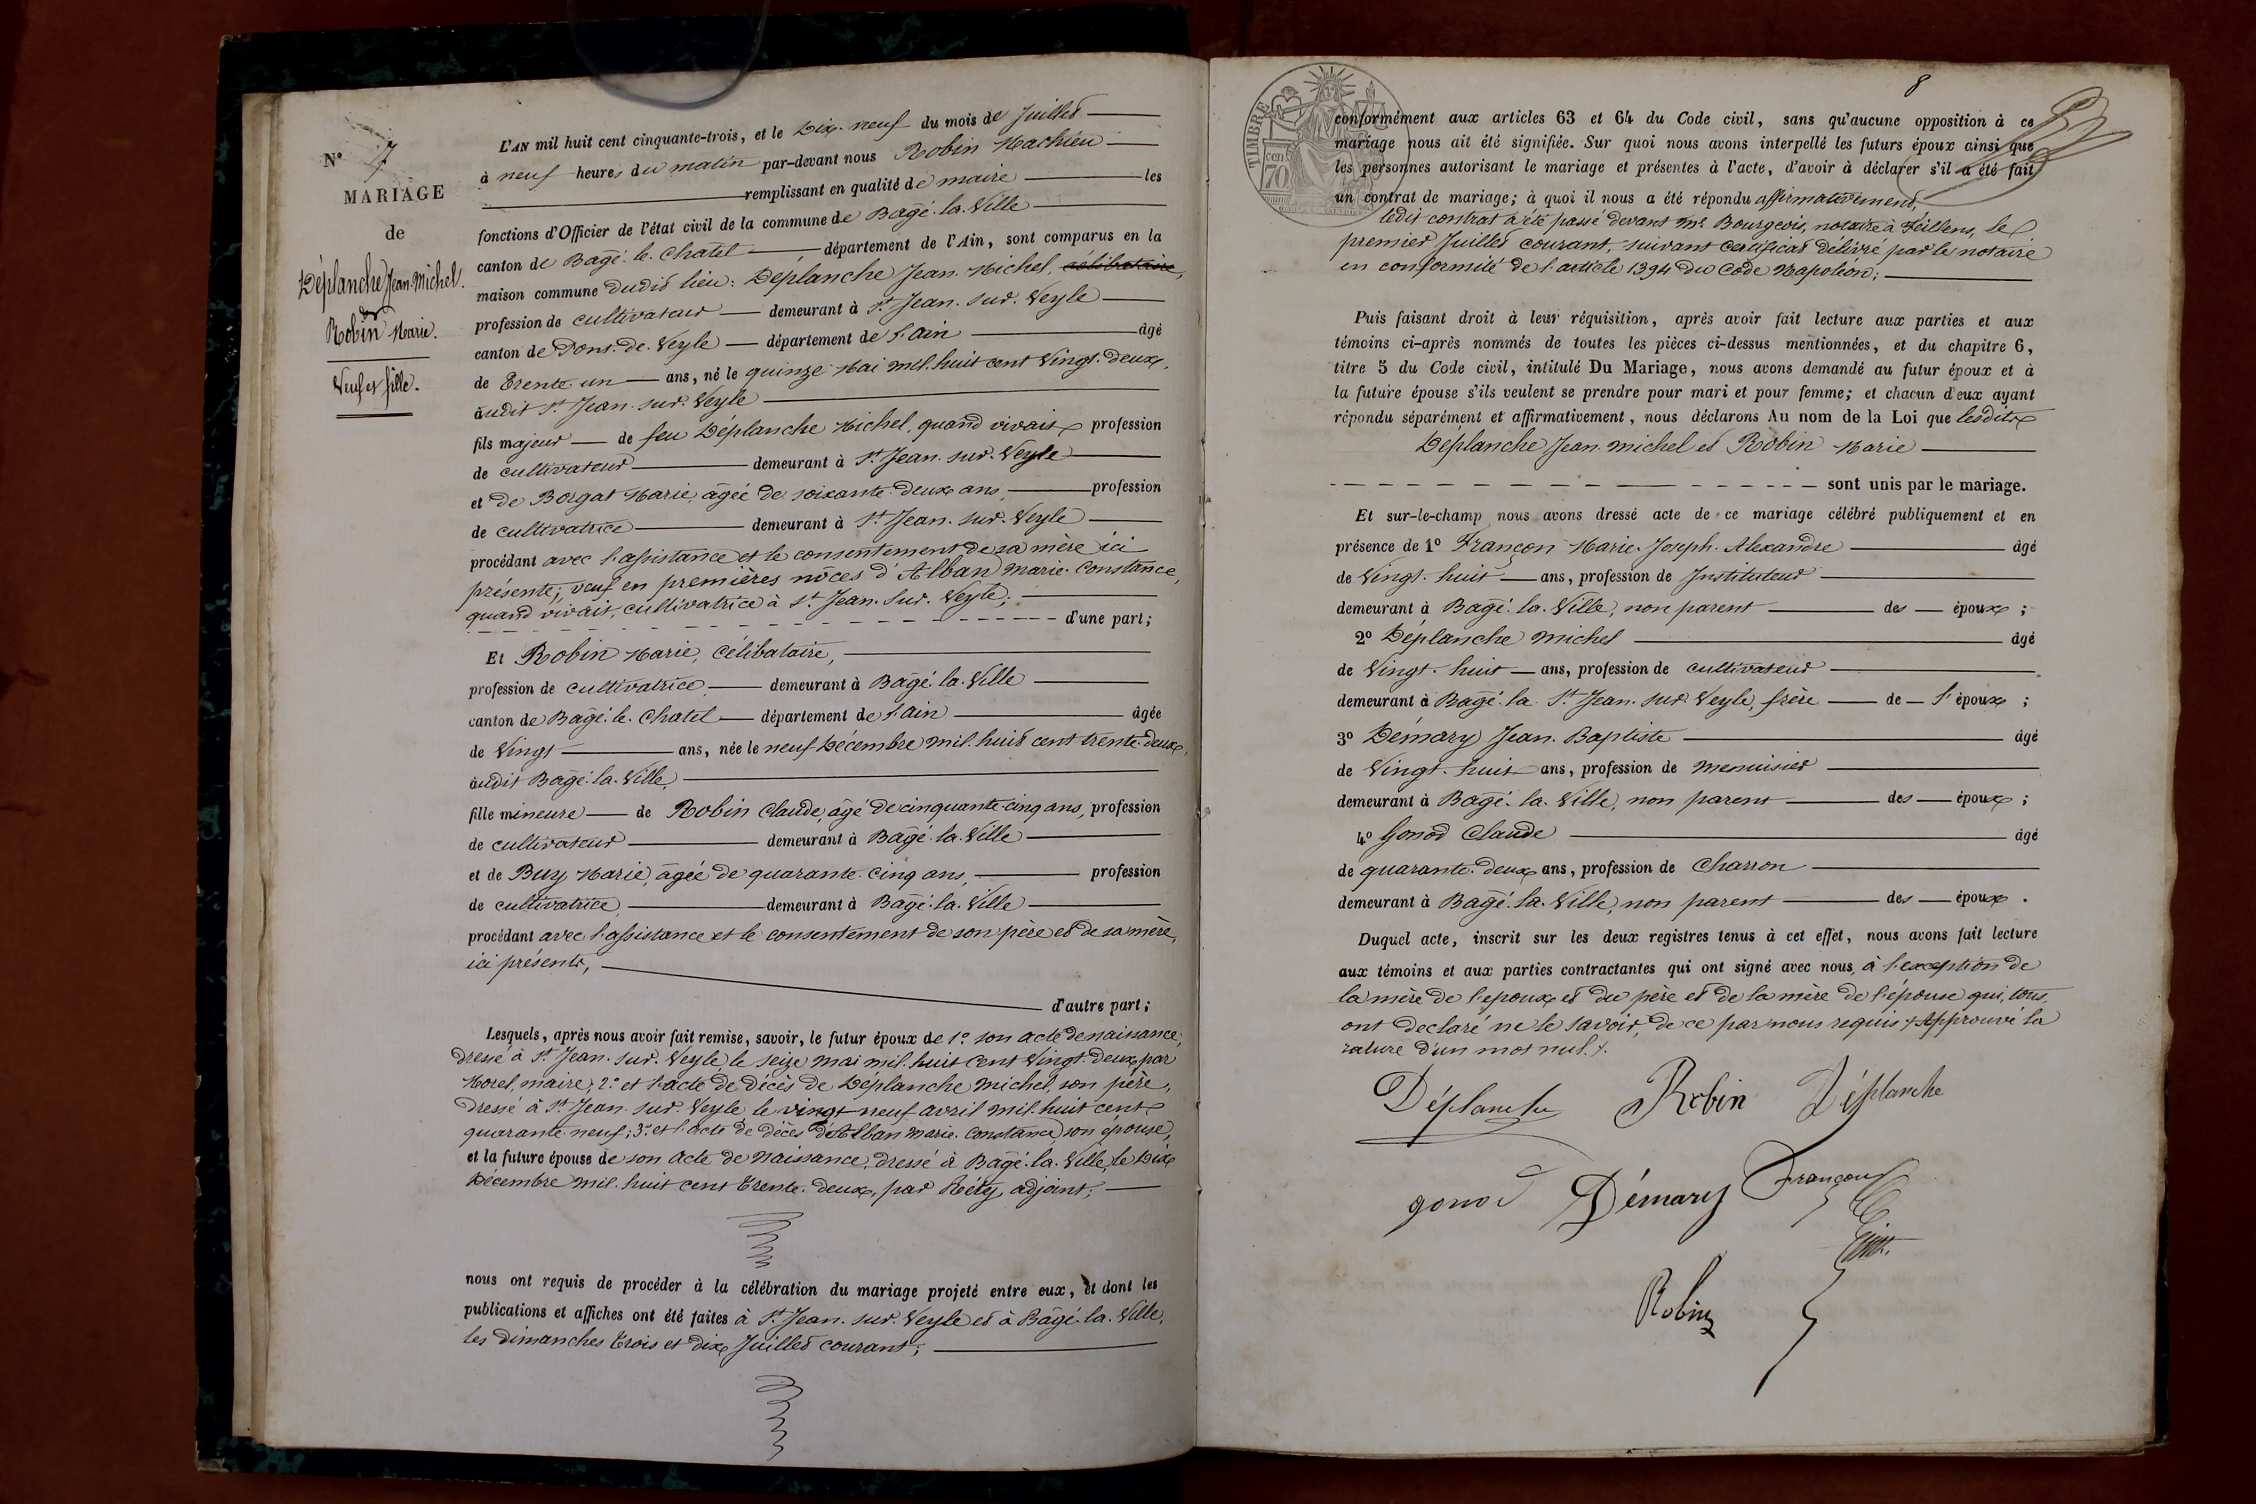 N° 7
MARIAGE
de
Déplanche Jean-Michel.
&
Robin Marie.
Veuf et fille.
L'AN mil huit cent cinquante-trois, et le Dix-neuf du mois de Juillet
à neuf heures du matin par-devant nous Robin Mathieu
remplissant en qualité de maire les
fonctions d'Officier de l'état civil de la commune de Bagé-la-Ville
canton de Bagé-le-Chatel département de l'Ain, sont comparus en la
maison commune dudit lieu: Déplanche Jean-Michel, célibataire,
profession de cultivateur demeurant à St Jean-sur-Veyle
canton de Pont-de-Veyle département de l'ain âgé
de Trente-un ans, né le quinze Mai mil-huit cent vingt-deux,
audit St Jean-sur-Veyle
fils majeur de feu Déplanche Michel, quand vivait profession
de cultivateur demeurant à St Jean-sur-Veyle
et de Borgat Marie, âgée de soixante-deux ans, profession
de cultivatrice demeurant à St Jean-sur-Veyle
procédant avec l'assistance et le consentement de sa mère ici
présente; veuf en premières nôces d'Alban Marie-Constance,
quand vivait, cultivatrice à St Jean-sur-Veyle;
d'une part;
Et Robin Marie, célibataire,
profession de cultivatrice, demeurant à Bagé-la-Ville
canton de Bagé-le-Chatel département de l'ain âgée
de Vingt ans, née le neuf Décembre mil-huit cent trente-deux,
audit Bagé-la-Ville,
fille mineure de Robin Claude, âgé de cinquante-cinq ans, profession
de cultivateur demeurant à Bagé-la-Ville
et de Buy Marie, âgée de quarante-cinq ans, profession
de cultivatrice, demeurant à Bagé-la-Ville
procédant avec l'assistance et le consentement de son père et de sa mère,
ici présents,
d'autre part;
Lesquels, après nous avoir fait remise, savoir, le futur époux de 1° son acte de naissance,
dressé à St Jean-sur-Veyle, le seize mai mil-huit cent vingt-deux, par
Morel, maire; 2° et l'acte de décès de Déplanche Michel, son père,
dressé à St Jean-sur-Veyle le vingt-neuf avril mil-huit cent
quarante-neuf; 3° et l'acte de décès d'Alban Marie-Constance, son épouse,
et la future épouse de son acte de naissance, dressé à Bagé-la-Ville, le Dix
Décembre mil-huit cent Trente-deux, par adjoint;
nous ont requis de procéder à la célébration du mariage projeté entre eux, et dont les
publications et affiches ont été faites à St Jean-sur-Veyle et à Bagé-la-Ville,
les dimanches Trois et dix Juillet courant;
8
TIMBRE
70 cent
conformément aux articles 63 et 64 du Code civil, sans qu'aucune opposition à ce
mariage nous ait été signifiée. Sur quoi nous avons interpellé les futurs époux ainsi que
les personnes autorisant le mariage et présentes à l'acte, d'avoir à déclarer s'il a été fait
un contrat de mariage; à quoi il nous a été répondu affirmativement,
ledit contrat a été passé devant Me Bourgeois, notaire à Feillens, le
premier Juillet courant, suivant certificat délivré par le notaire
en conformité de l'article 1394 du Code Napoléon;
Puis faisant droit à leur réquisition, après avoir fait lecture aux parties et aux
témoins ci-après nommés de toutes les pièces ci-dessus mentionnées, et du chapitre 6,
titre 5 du Code civil, intitulé Du Mariage, nous avons demandé au futur époux et à
la future épouse s'ils veulent se prendre pour mari et pour femme; et chacun d'eux ayant
répondu séparément et affirmativement, nous déclarons Au nom de la Loi que lesdits
Déplanche Jean-Michel et Robin Marie
sont unis par le mariage.
Et sur-le-champ nous avons dressé acte de ce mariage célébré publiquement et en
présence de 1° Françon Marie-Joseph-Alexandre âgé
de Vingt-huit ans, profession de Instituteur
demeurant à Bagé-la-Ville, non parent des époux;
2° Déplanche Michel âgé
de Vingt-huit ans, profession de cultivateur
demeurant à Bagé-la St Jean-sur-Veyle, frère de l'époux;
3° Démary Jean-Baptiste âgé
de Vingt-huit ans, profession de menuisier
demeurant à Bagé-la-Ville, non parent des époux;
4° Gonod Claude âgé
de quarante-deux ans, profession de Charron
demeurant à Bagé-la-Ville, non parent des époux.
Duquel acte, inscrit sur les deux registres tenus à cet effet, nous avons fait lecture
aux témoins et aux parties contractantes qui ont signé avec nous, à l'exception de
la mère de l'époux et du père et de la mère de l'épouse qui, tous,
ont declaré ne le savoir, de ce par nous requis. Approuvé la
rature d'un mot nul.
Déplanche Robin Déplanche
gonod Démary Françon
Robin